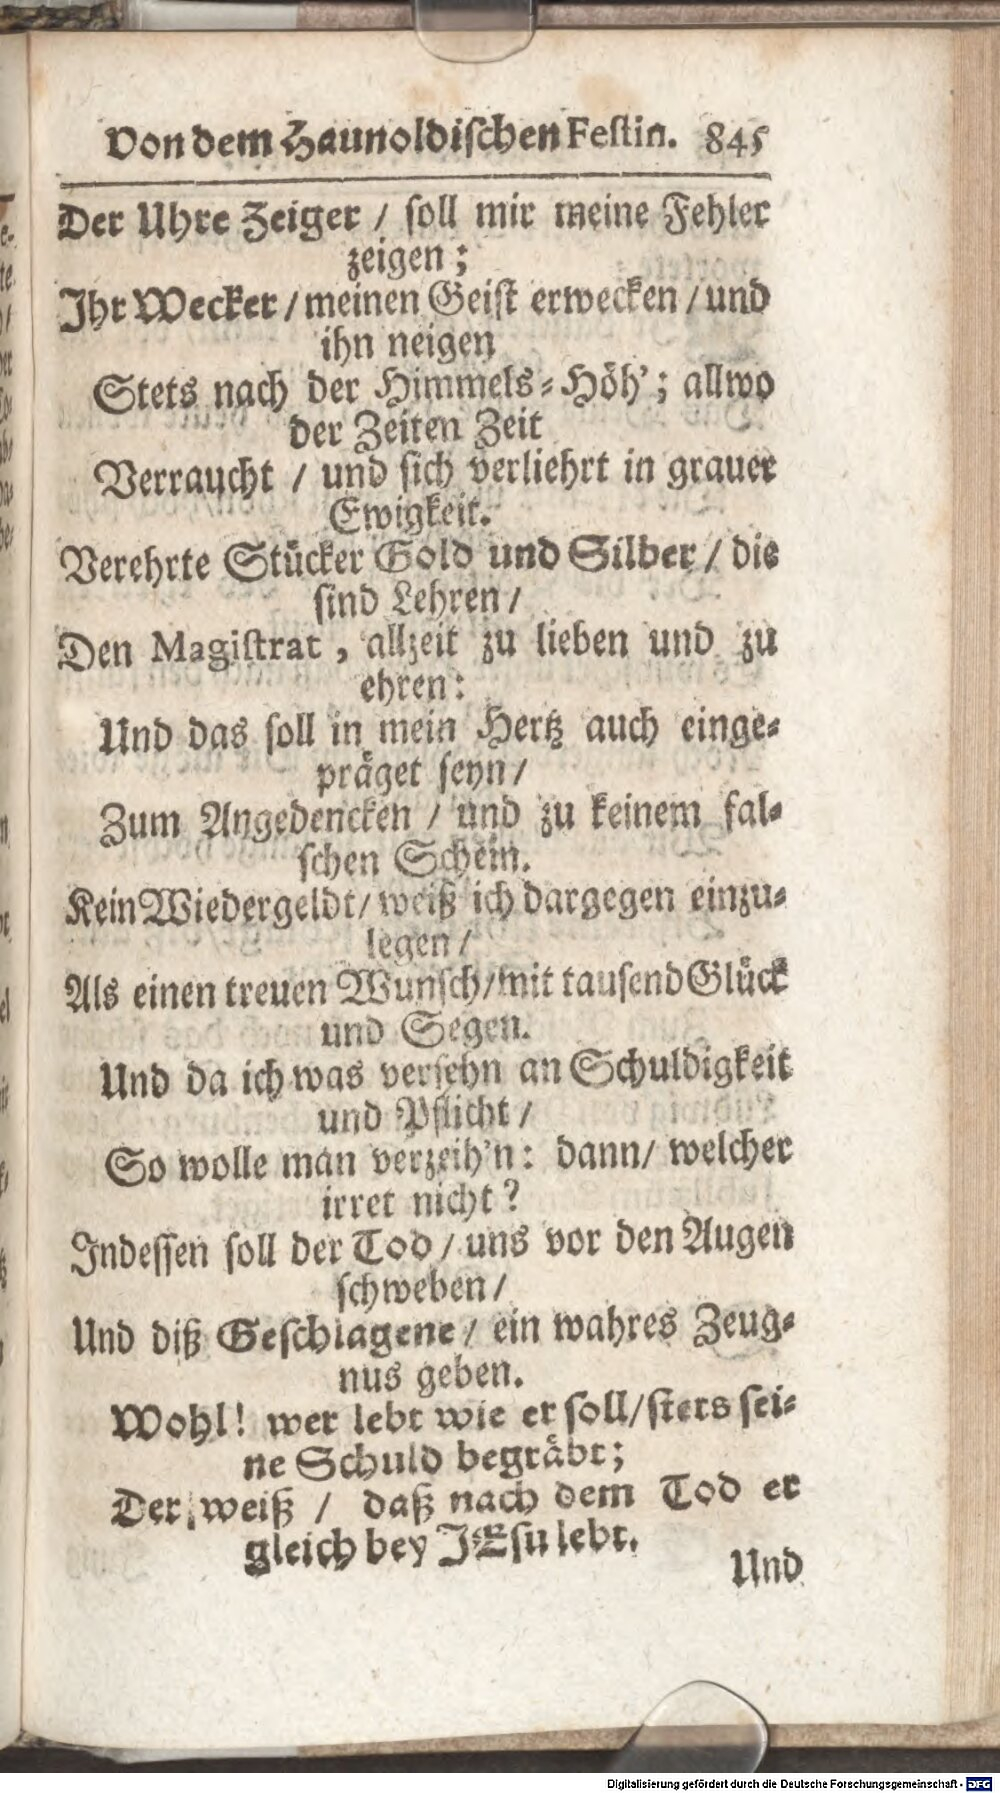 Von dem Haunoldischen Festin. 845
Der Uhre Zeiger / soll mir meine Fehler
zeigen;
Ihr Wecker / meinen Geist erwecken / und
ihn neigen
Stets nach der Himmels-Höh'; allwo
der Zeiten Zeit
Verraucht / und sich verliehrt in grauer
Ewigkeit.
Verehrte Stücker Gold und Silber / die
sind Lehren /
Den Magistrat, allzeit zu lieben und zu
ehren:
Und das soll in mein Hertz auch einge-
präget seyn /
Zum Angedencken / und zu keinem fal-
schen Schein.
Kein Wiedergeldt / weiß ich dargegen einzu-
legen /
Als einen treuen Wunsch / mit tausend Glück
und Segen.
Und da ich was versehn an Schuldigkeit
und Pflicht /
So wolle man verzeih'n: dann / welcher
irret nicht?
Indessen soll der Tod / uns vor den Augen
schweben /
Und diß Geschlagene / ein wahres Zeug-
nus geben.
Wohl! wer lebt wie er soll / stets sei-
ne Schuld begräbt;
Der weiß / daß nach dem Tod er
gleich bey JEsu lebt.
Und
Digitalisierung gefördert durch die Deutsche Forschungsgemeinschaft - DFG